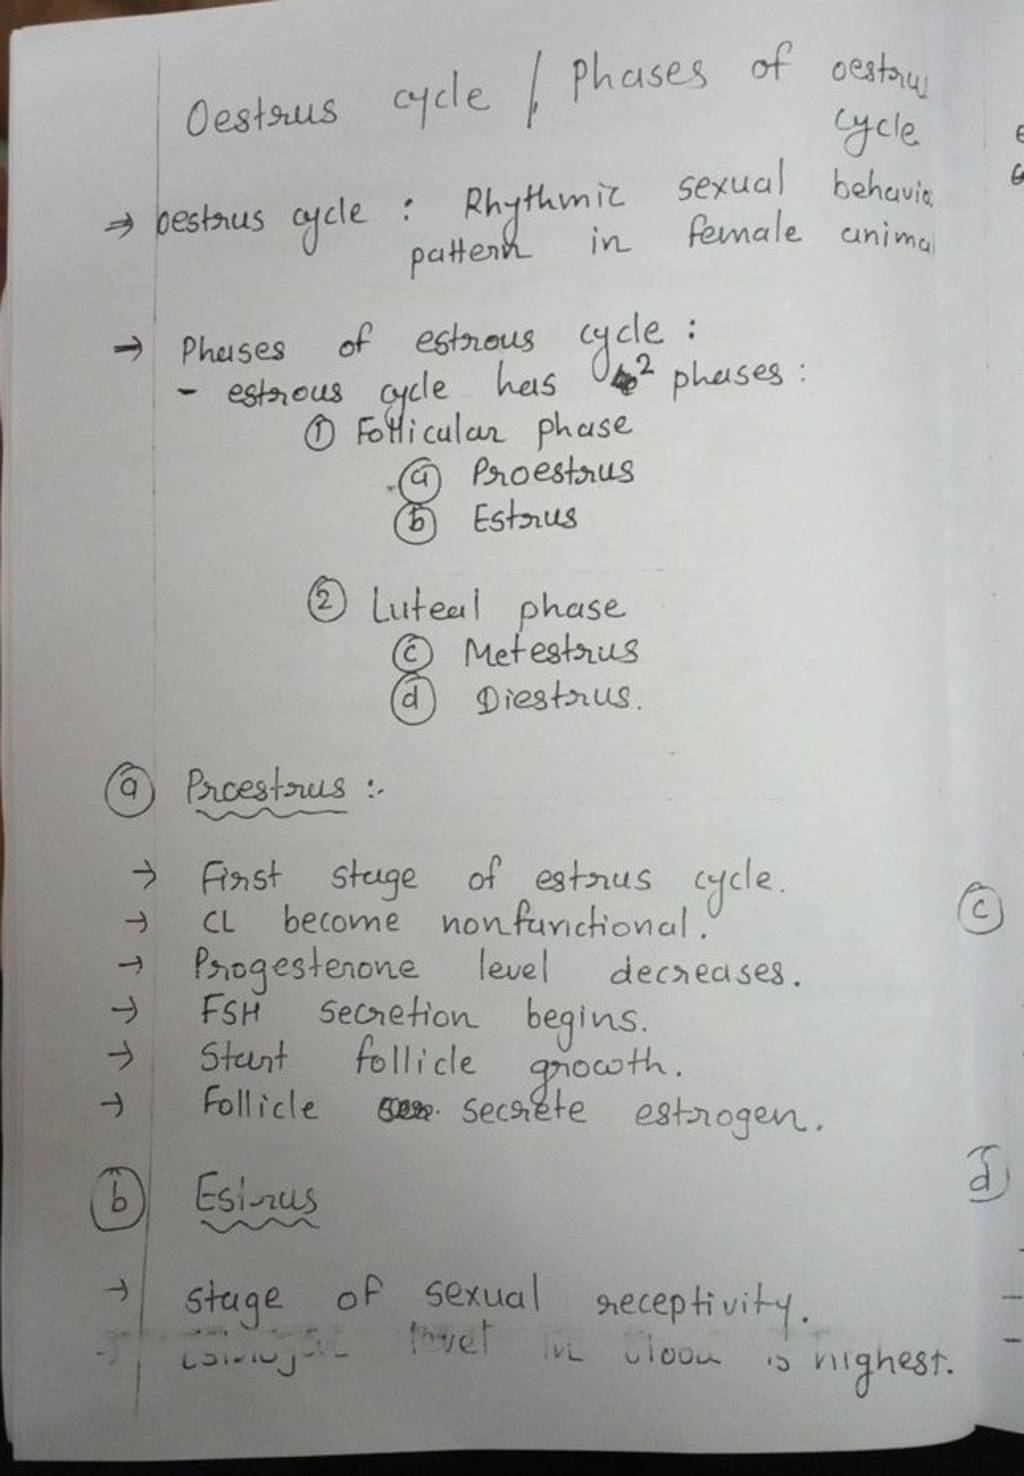 Oestrus cycle / Phases of oestrus
cycle
⇒ oestrus cycle : Rhythmic sexual behavio
pattern in female anima
→ Phases of estrous cycle :
- estrous cycle has 2 phases :
① Follicular phase
ⓐ Proestrus
ⓑ Estrus
② Luteal phase
ⓒ Metestrus
ⓓ Diestrus.
ⓐ Proestrus :-
→ First stage of estrus cycle.
→ CL become nonfunctional.
→ Progesterone level decreases.
→ FSH secretion begins.
→ Start follicle growth.
→ Follicle secrete estrogen.
ⓑ Estrus
→ stage of sexual receptivity.
→ Estrogen level in blood is highest.
ⓒ
ⓓ